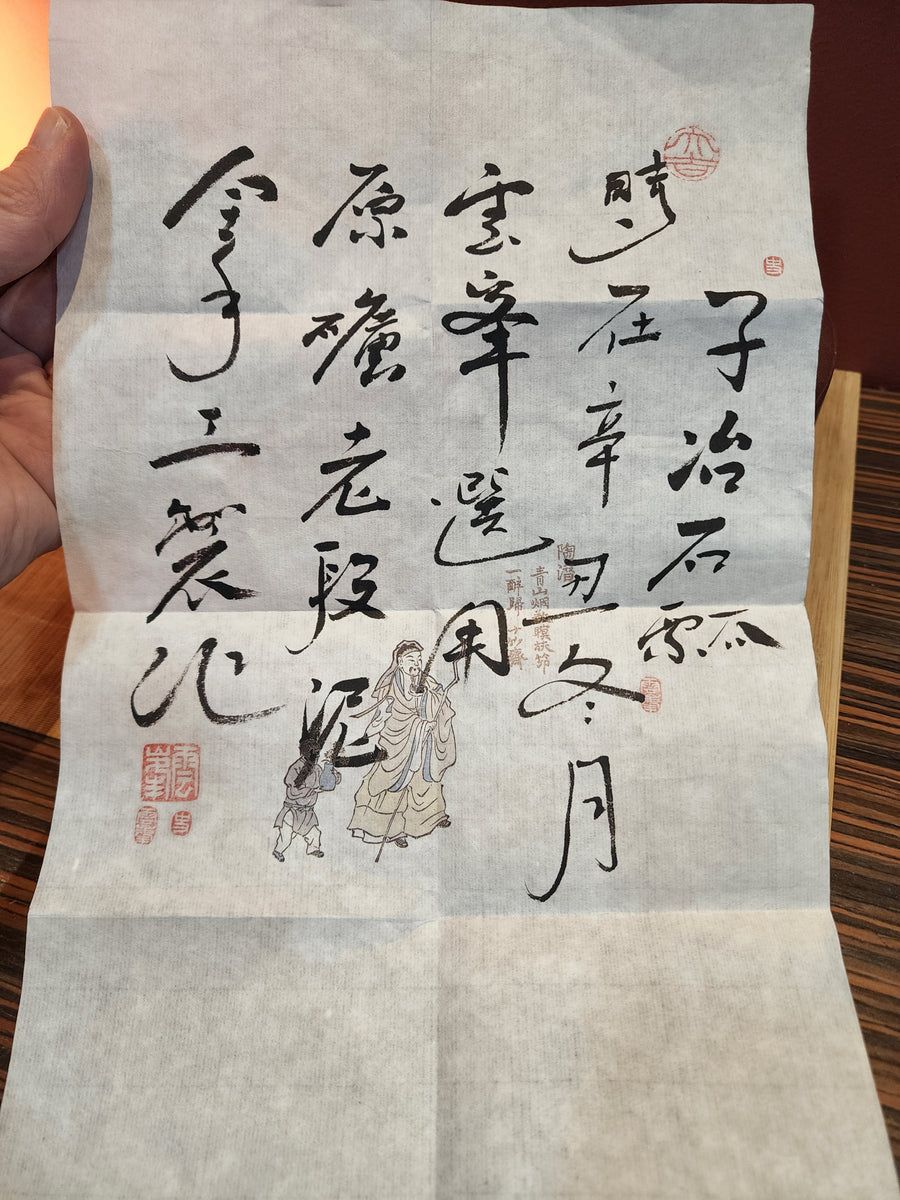 子冶石瓢
時在辛丑冬月
雲峯選用
原礦老段泥
全手工製作
陶潛
青山烟
一醉歸